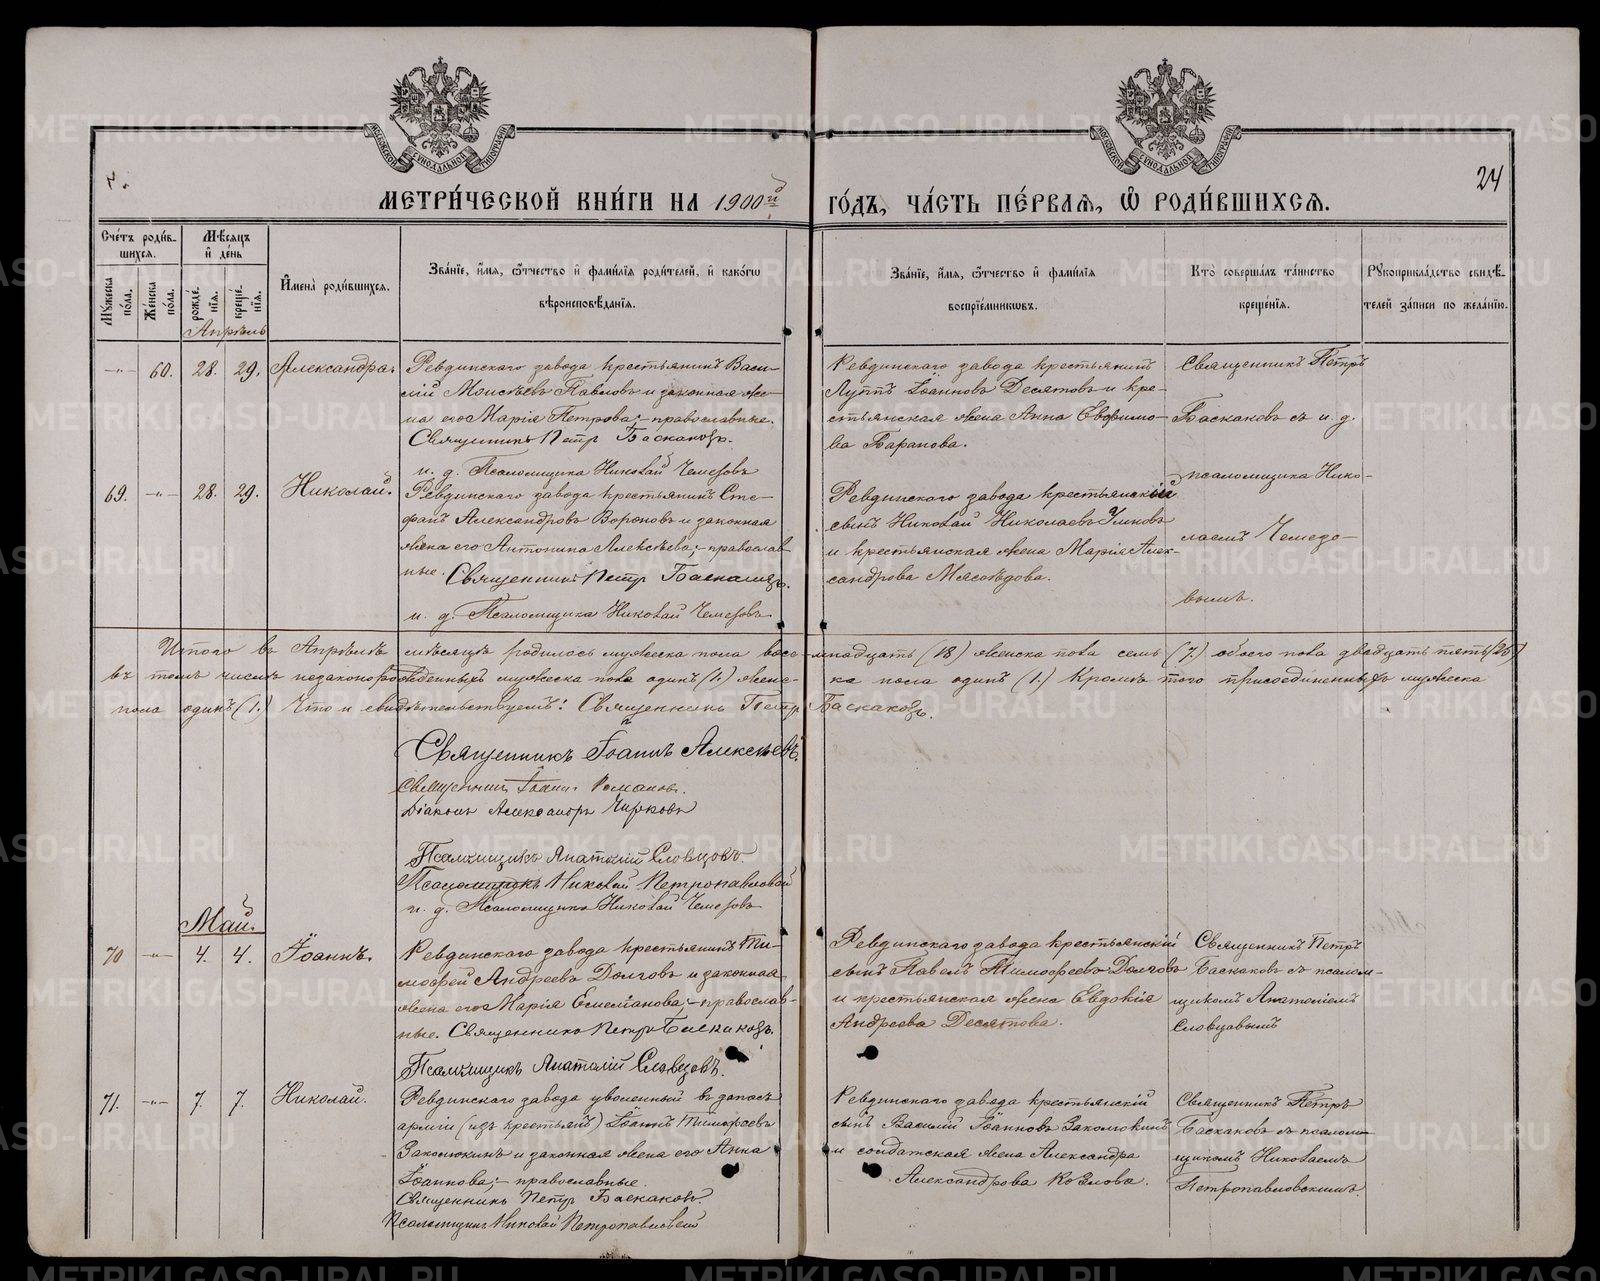 МЕТРИ́ЧЕСКОЙ КНИ́ГИ НА 1900й
ГО́ДЪ, ЧА́СТЬ ПЕ́РВАѦ, Ѡ РОДИ́ВШИХСѦ.
24
Сче́тъ роди́в-
шихся.
Мѣ́сяцъ
и҆ де́нь
Му́жеска
по́ла.
Же́нска
по́ла.
рожде́-
нїя.
креще́-
нїя.
И҆мена̀ роди́вшихся.
Зва́нїе, и҆́мя, ѻ҆́тчество и҆ фами́лїя роди́телей, и҆ како́гѡ
вѣроисповѣ́данїя.
Зва́нїе, и҆́мя, ѻ҆́тчество и҆ фами́лїя
воспрїе́мниковъ.
Кто̀ соверша́лъ та́инство
креще́нїя.
Рꙋкоприкла́дство свидѣ́-
телей за́писи по жела́нїю.
Апрѣль
-"- 60. 28. 29. Александра.
Ревдинскаго завода крестьянинъ Васи-
лій Моисѣевъ Павловъ и законная же-
на его Марія Петрова; - православные.
Священникъ Петр Баскаковъ.
и. д. Псаломщика Николай Чемезовъ
Ревдинскаго завода крестьянинъ
Лупъ Іоанновъ Десятовъ и кре-
стьянская жена Анна Евфимо-
ва Баранова.
Священникъ Петръ
Баскаковъ съ и. д.
псаломщика Нико-
лаемъ Чемезо-
вымъ.
69. -"- 28. 29. Николай.
Ревдинскаго завода крестьянинъ Сте-
фанъ Александровъ Вороновъ и законная
жена его Антонина Алексѣева; - православ-
ные. Священникъ Петр Баскаковъ.
и. д. Псаломщика Николай Чемезовъ
Ревдинскаго завода крестьянскій
сынъ Николай Николаевъ Умновъ
и крестьянская жена Марія Алек-
сандрова Мясоѣдова.
Итого въ Апрѣлѣ мѣсяцѣ родилось мужеска пола восе-мнадцать (18) женска пола семь (7.) обоего пола двадцать пять (25)
въ томъ числѣ незаконорожденныхъ мужеска пола одинъ (1.) женс-ка пола одинъ (1.) Кромѣ того присоединенныхъ мужеска
пола одинъ (1.) Что и свидѣтельствуемъ: Священникъ Петр Баскаковъ.
Священникъ Іоаннъ Алексѣевъ.
Священникъ Іоаннъ Романов.
Діаконъ Александръ Чирковъ
Псаломщикъ Анатолій Словцовъ.
Псаломщикъ Николай Петропавловскій
и. д. Псаломщика Николай Чемезовъ
Май.
70 -"- 4. 4. Іоаннъ.
Ревдинскаго завода крестьянинъ Ти-
мофей Андреевъ Долговъ и законная
жена его Марія Емеліанова; - православ-
ные. Священникъ Петр Баскаковъ.
Псаломщикъ Анатолій Словцовъ.
Ревдинскаго завода крестьянскій
сынъ Павелъ Тимофеевъ Долговъ
и крестьянская жена Евдокія
Андреева Десятова.
Священникъ Петръ
Баскаковъ съ псалом-
щикомъ Анатоліемъ
Словцовымъ
71. -"- 7. 7. Николай.
Ревдинскаго завода уволенный въ запасъ
арміи (изъ крестьянъ) Іоаннъ Тимофеевъ
Законюкинъ и законная жена его Анна
Іоаннова; - православные.
Священникъ Петр Баскаковъ.
Псаломщикъ Николай Петропавловскій
Ревдинскаго завода крестьянскій
сынъ Василій Іоанновъ Закомюкинъ
и солдатская жена Александра
Александрова Козлова.
Священникъ Петръ
Баскаковъ съ псалом-
щикомъ Николаемъ
Петропавловскимъ.